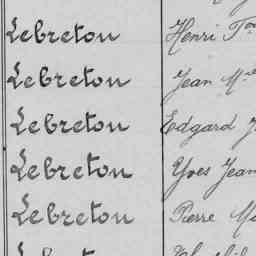 Lebreton Henri
Lebreton Jean
Lebreton Edgard
Lebreton Yves Jean
Lebreton Pierre